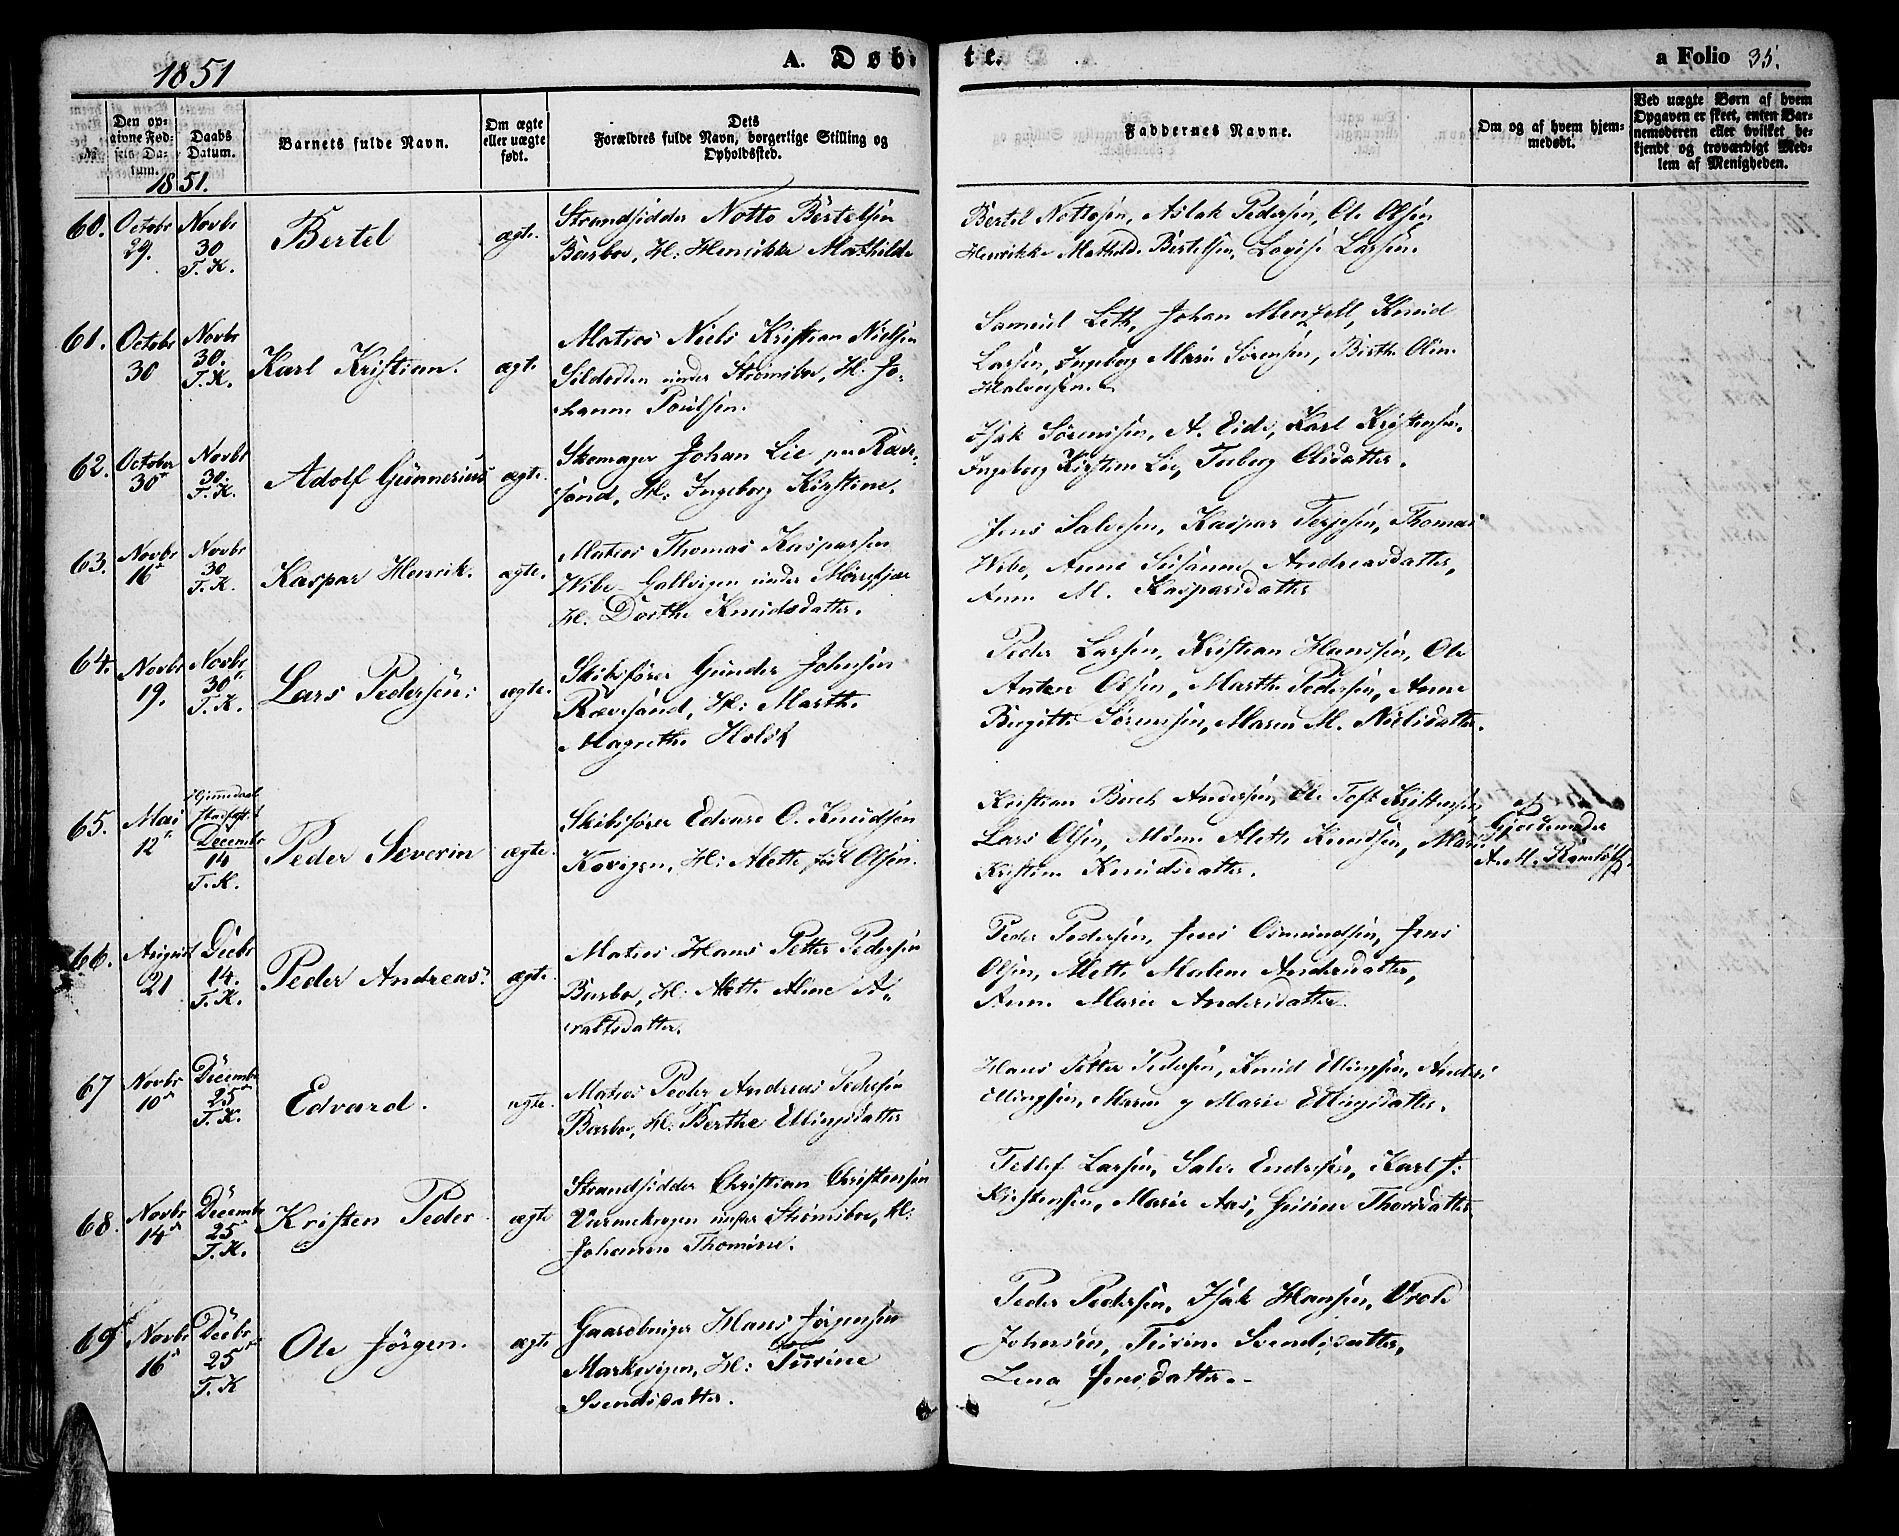 1851
A. Døbte.
a Folio 35.
No.
Den opgivne Fødsels Datum.
Daabs Datum.
Barnets fulde Navn.
Om ægte eller uægte født.
Dets Forældres fulde Navn, borgerlige Stilling og Opholdssted.
Faddernes Navne.
Om og af hvem hjemmedøbt.
Ved uægte Børn af hvem Opgaven er skeet, enten Barnemoderen eller hvilket bekjendt og troværdigt Medlem af Menigheden.
1851.
60. Octobr 29. Novbr 30 T. K. Bertel ægte.
Strandsidder Notto Bertelsen
Barbo, H: Henrikke Mathilde
Bertel Nottosen, Aslak Pedersen, Ole Olsen
Henrikke Mathild. Bertelsen, Lovise Larsen.
61. Octobr 30 Novbr 30. T. K. Karl Kristian. ægte
Matros Niels Kristian Nielsen
Sildodden under Strømsbo, H. Jo-
hanne Poulsen.
Samuel Leth, Johan Menzell, Knud
Larsen, Ingeborg Marie Sørensen, Birthe Oline
Halvorsen.
62. October 30 Novbr 30. T. K. Adolf Gunnerius ægte.
Skomager Johan Lie paa Ræve-
sand, H: Ingeborg Kirstine.
Isak Sørensen, A. Eide, Karl Kristensen.
Ingeborg Kirstine Lie, Torborg Olsdatter.
63. Novbr 16 Novbr 30 T. K. Kaspar Henrik. ægte.
Matros Thomas Kaspersen
Wibe Gallvigen under Mørefjær
H. Dorthe Knudsdatter.
Jens Salvesen, Kaspar Terjesen, Thomas
Wibe, Anne Susanne Andreasdatter,
Anne M. Kaspersdatter
64. Novbr 19. Novbr 30 T. K. Lars Pedersen: ægte.
Skibsfører Gunder Johnsen
Rævesand, H: Marthe
Magrethe Holst
Peder Larsen, Kristian Hansen, Ole
Anton Olsen, Marthe Pedersen, Anne
Birgitte Sørensen, Maren M. Nielsdatter.
65. Mai 12 December 14 T. K. Peder Severin ægte.
Skibsfører Edvard O. Knudsen
Kovigen, H: Alette, født Olsen.
Kristian Birch Andersen, Ole Toft Kristensen
Lars Olsen, Alette Knudsen, Maren
Kristine Knudsdatter.
af
Gjordemoder
A. M.
66. August 21 Decbr 14. T. K. Peder Andreas. ægte.
Matros Hans Petter Pedersen
Barbo, H. Alette Aline A-
raltsdatter.
Peder Pedersen, Jens Osmundsen, Jens
Olsen, Alette Malene Andersdatter,
Anne Marie Andersdatter.
67 Novbr 10 Decembr 25 T. K. Edvard. ægte.
Matros Peder Andreas Pedersen
Barbo, H. Berthe Ellingsdatter
Hans Petter Pedersen, Knud Ellingsen, Anders
Ellingsen, Maren g Marie Ellingsdatter.
68. Novbr 14 Decembr 25 T. K. Kristen Peder ægte
Strandsidder Christian Christensen
under Strømsbo, H:
Johanne Thomine.
Tellef Larsen, Salve Endresen, Karl J:
Kristensen, Marie Aas, Thorsdatter.
69 Novbr 16 Decbr 25 T. K Ole Jörgen. ægte
Gaardbruger Hans Jørgensen
Markevigen, H: Tursine
Svendsdatter.
Peder Pedersen, Isak Hansen, Vrole
Johnsen, Tursine Svendsdatter,
Lena Jensdatter.